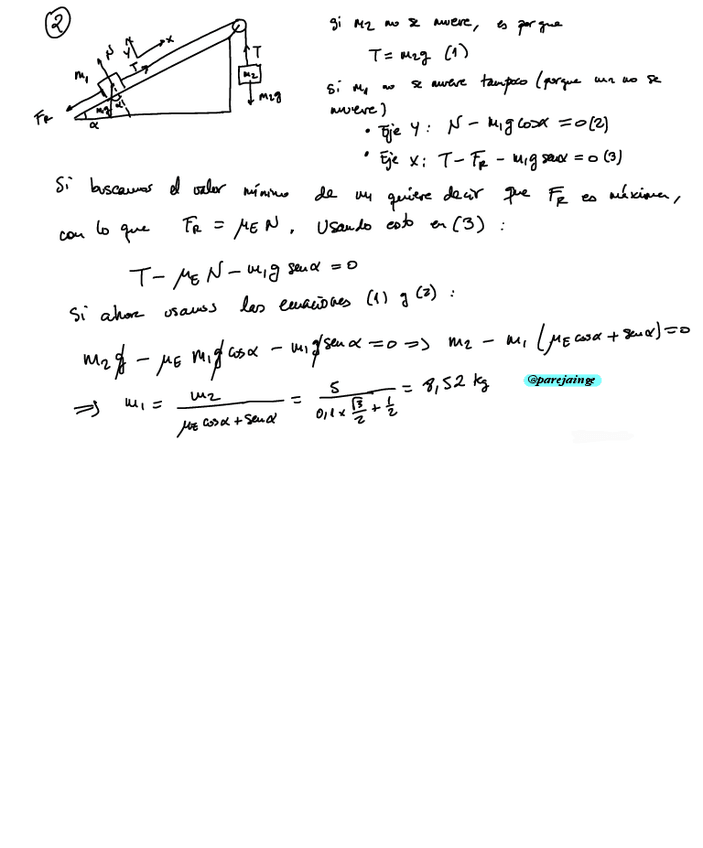 2
Si m2 no se mueve, es porque
T = m2g (1)
Si m1 no se mueve tampoco (porque m2 no se
mueve)
• Eje Y: N - m1g cosα = 0 (2)
• Eje X: T - FR - m1g senα = 0 (3)
x
Y
N
T
m1
m1g
α
FR
α
T
m2
m2g
Si buscamos el valor mínimo de m1 quiere decir que FR es máxima,
con lo que FR = μE N. Usando esto en (3):
T - μE N - m1g senα = 0
Si ahora usamos las ecuaciones (1) y (2):
m2g - μE m1g cosα - m1g senα = 0 => m2 - m1 (μE cosα + senα) = 0
=> m1 = m2 / (μE cosα + senα) = 5 / (0,1 x √3/2 + 1/2) = 8,52 kg
@parejainge